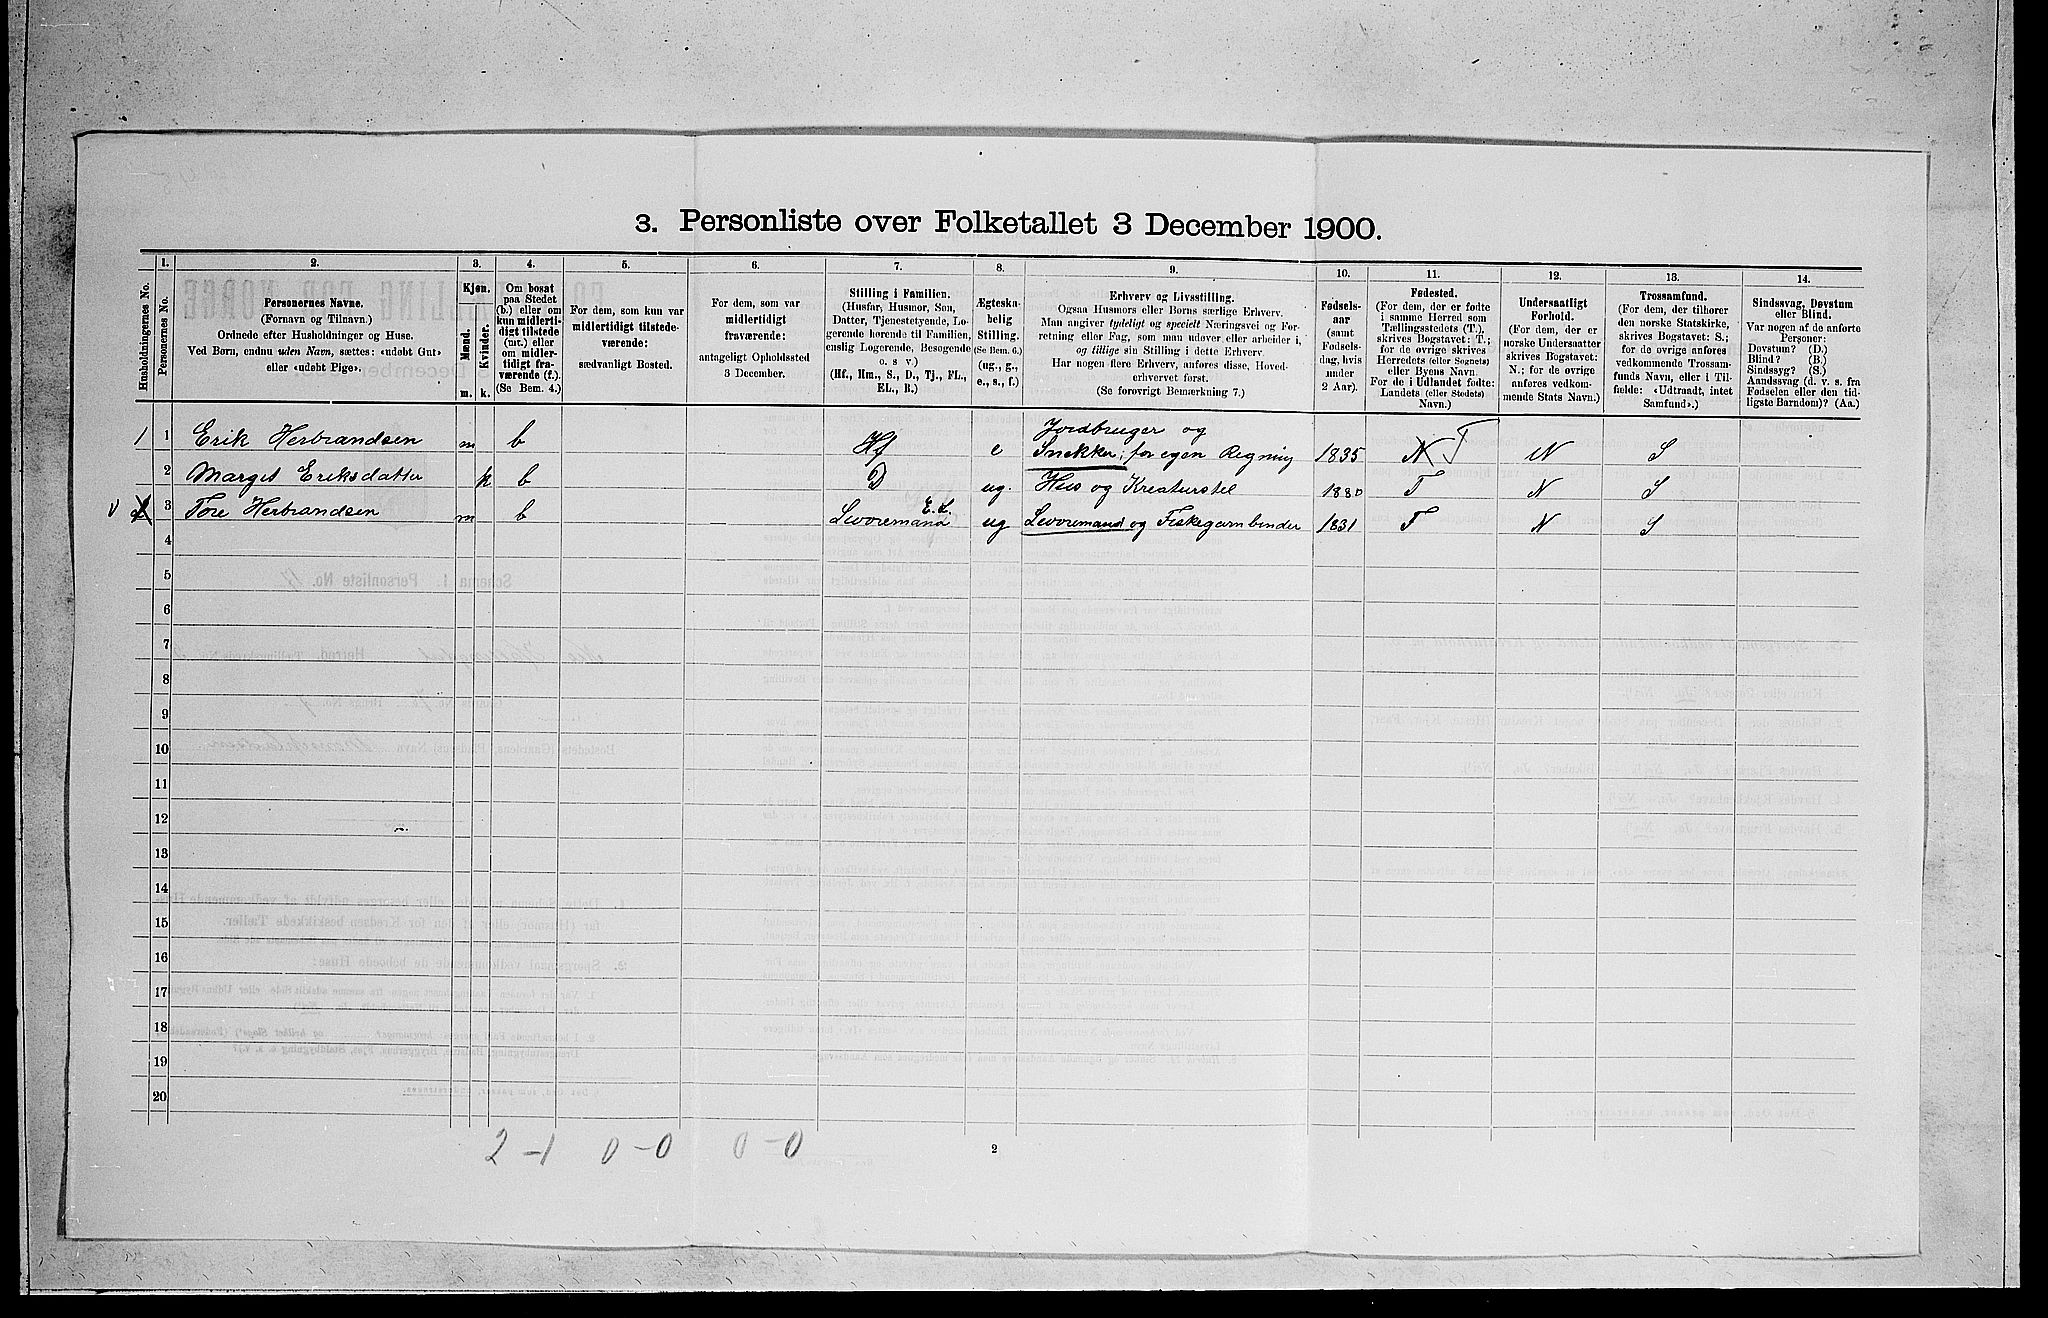 3. Personliste over Folketallet 3 December 1900.
1. 2. 3. 4. 5. 6. 7. 8. 9. 10. 11. 12. 13. 14.
Husholdningernes No.
Personernes No.
Personernes Navne.
(Fornavn og Tilnavn.)
Ordnede efter Husholdninger og Huse.
Ved Børn, endnu uden Navn, sættes: «udøbt Gut»
eller «udøbt Pige».
Kjøn.
Mænd.
Kvinder.
m. k.
Om bosat
paa Stedet
(b.) eller om
kun midlerti-
digt tilstede
(mt.) eller
om midler-
tidigt fra-
værende (f.)
(Se Bem. 4.)
For dem, som kun var
midlertidigt tilstede-
værende:
sædvanligt Bosted.
For dem, som var
midlertidigt
fraværende:
antageligt Opholdssted
3 December.
Stilling i Familien.
(Husfar, Husmor, Søn,
Datter, Tjenestetyende, Lo-
gerende hørende til Familien,
enslig Logerende, Besøgende
o. s. v.)
(Hf., Hm., S., D., Tj., FL.,
EL., B.)
Ægteska-
belig
Stilling.
(Se Bem. 6.)
(ug., g.,
e., s., f.)
Erhverv og Livsstilling.
Ogsaa Husmors eller Børns særlige Erhverv.
Man angiver tydeligt og specielt Næringsvei og For-
retning eller Fag, som man udøver eller arbeider i,
og tillige sin Stilling i dette Erhverv.
Har nogen flere Erhverv, anføres disse, Hoved-
erhvervet først.
(Se forøvrigt Bemærkning 7.)
Fødsels-
aar
(samt
Fødsels-
dag, hvis
under
2 Aar).
Fødested.
(For dem, der er fødte
i samme Herred som
Tællingsstedets (T.),
skrives Bogstavet: T.;
for de øvrige skrives
Herredets (eller Sognets)
eller Byens Navn.
For de i Udlandet fødte:
Landets (eller Stedets)
Navn.)
Undersaatligt
Forhold.
(For dem, der er
norske Undersaatter
skrives Bogstavet:
N.; for de øvrige
anføres vedkom-
mende Stats Navn.)
Trossamfund.
(For dem, der tilhører
den norske Statskirke,
skrives Bogstavet: S.;
for de øvrige anføres
vedkommende Trossam-
funds Navn, eller i Til-
fælde: «Udtraadt, intet
Samfund».)
Sindssvag, Døvstum
eller Blind.
Var nogen af de anførte
Personer:
Døvstum? (D.)
Blind? (B.)
Sindssyg? (S.)
Aandssvag (d. v. s. fra
Fødselen eller den tid-
ligste Barndom)? (Aa.)
Jordbruger og
1 1 Erik Herbrandsen m b Hf e Snekker, for egen Regning 1835 N T N S
2 Margit Eriksdatter k b D ug. Hus og Kreaturstel 1880 T N S
E.L.
v 2 3 Tore Herbrandsen m b Livøremand ug Livøremand og Fiskegarnbinder 1831 T N S
4
5
6
7
8
9
10
11
12
13
14
15
16
17
18
19
20
2-1 0-0 0-0
2